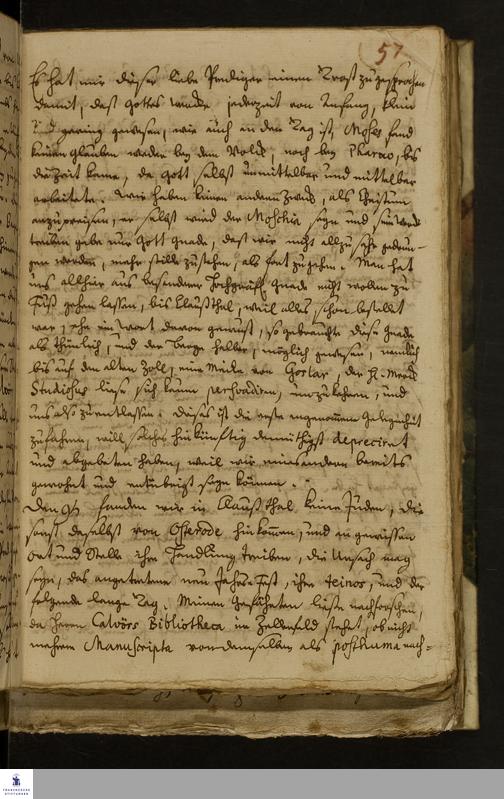 57
Es hat mir dieser liebe Prediger einen Trost zugesprochen
damit, daß Gottes wercke jederzeit von Anfang, klein
und gering gewesen, wie auch an dem Tag ist, Moses fand
keinen glauben weder bey dem Volck, noch bey Pharao, bis
die Zeit kame, da Gott selbst unmittelbar und mittelbar
arbeitete. Wir haben keinen andern Zweck, als Christum
anzupreisen, er selbst wird der Moschia seyn und sein werck
treiben gebe nur Gott gnade, daß wir nicht allzu sehr gedrun-
gen werden, mehr stille zu stehen, als fort zu gehen. Man hat
uns allhier aus besonderer Hochgräffl. gnade nicht wollen zu
Fuß gehen lassen, bis Claußthal, weil alles schon bestellt
war, ehe ein Wort davon gewust, so gebrauchte diese gnade
als thunlich, und der Berge halber, möglich gewesen, nemlich
bis auf den alten Zoll, eine Meile von Goslar, der H.
Studiosus liese sich kaum persvadiren, umzukehren, und
uns also zu entlassen. dieses ist die erste angenommene gelegenheit
zu fahren, will solches hinkünftig demüthigst depreciret
und abgebeten haben, weil wir miteinander bereits
gewohnt und seyn können.
Den 9 funden wir in Claußthal keine Juden, die
sonst daselbst von Osterode hinkommen, und in gewissen
Ort und Stelle ihre Handlung treiben, die Ursach mag
seyn, das angetretene neu Jahrs-Fest, ihre und der
folgende lange Tag. Meinen Gefährten liese nachforschen,
da Herrn Calvörs Bibliotheca in Zellerfeld stehet, ob nicht
mehrere Manuscripta von demselben als posthuma nach-
FRANCKESCHE
STIFTUNGEN